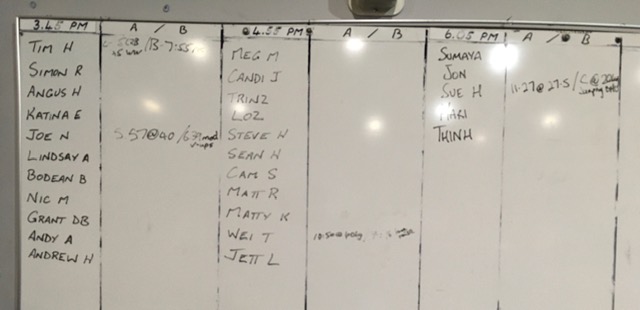 3.45 PM A / B
TIM H B-7:55
SIMON R
ANGUS H
KATINA E
JOE N 5 57@40 /
LINDSAY A
BODEAN B
NIC M
GRANT DB
ANDY A
ANDREW H
@ 4.55 PM A / B
MEG M
CANDI J
TRINZ
LOZ
STEVE H
SEAN H
CAM S
MATT R
MATTY K
WEI T
JETT L
6.05 PM A / B
SUMAYA
JON
SUE H 11.27@ 27.5 / C@ 20kg
MARI
THINH